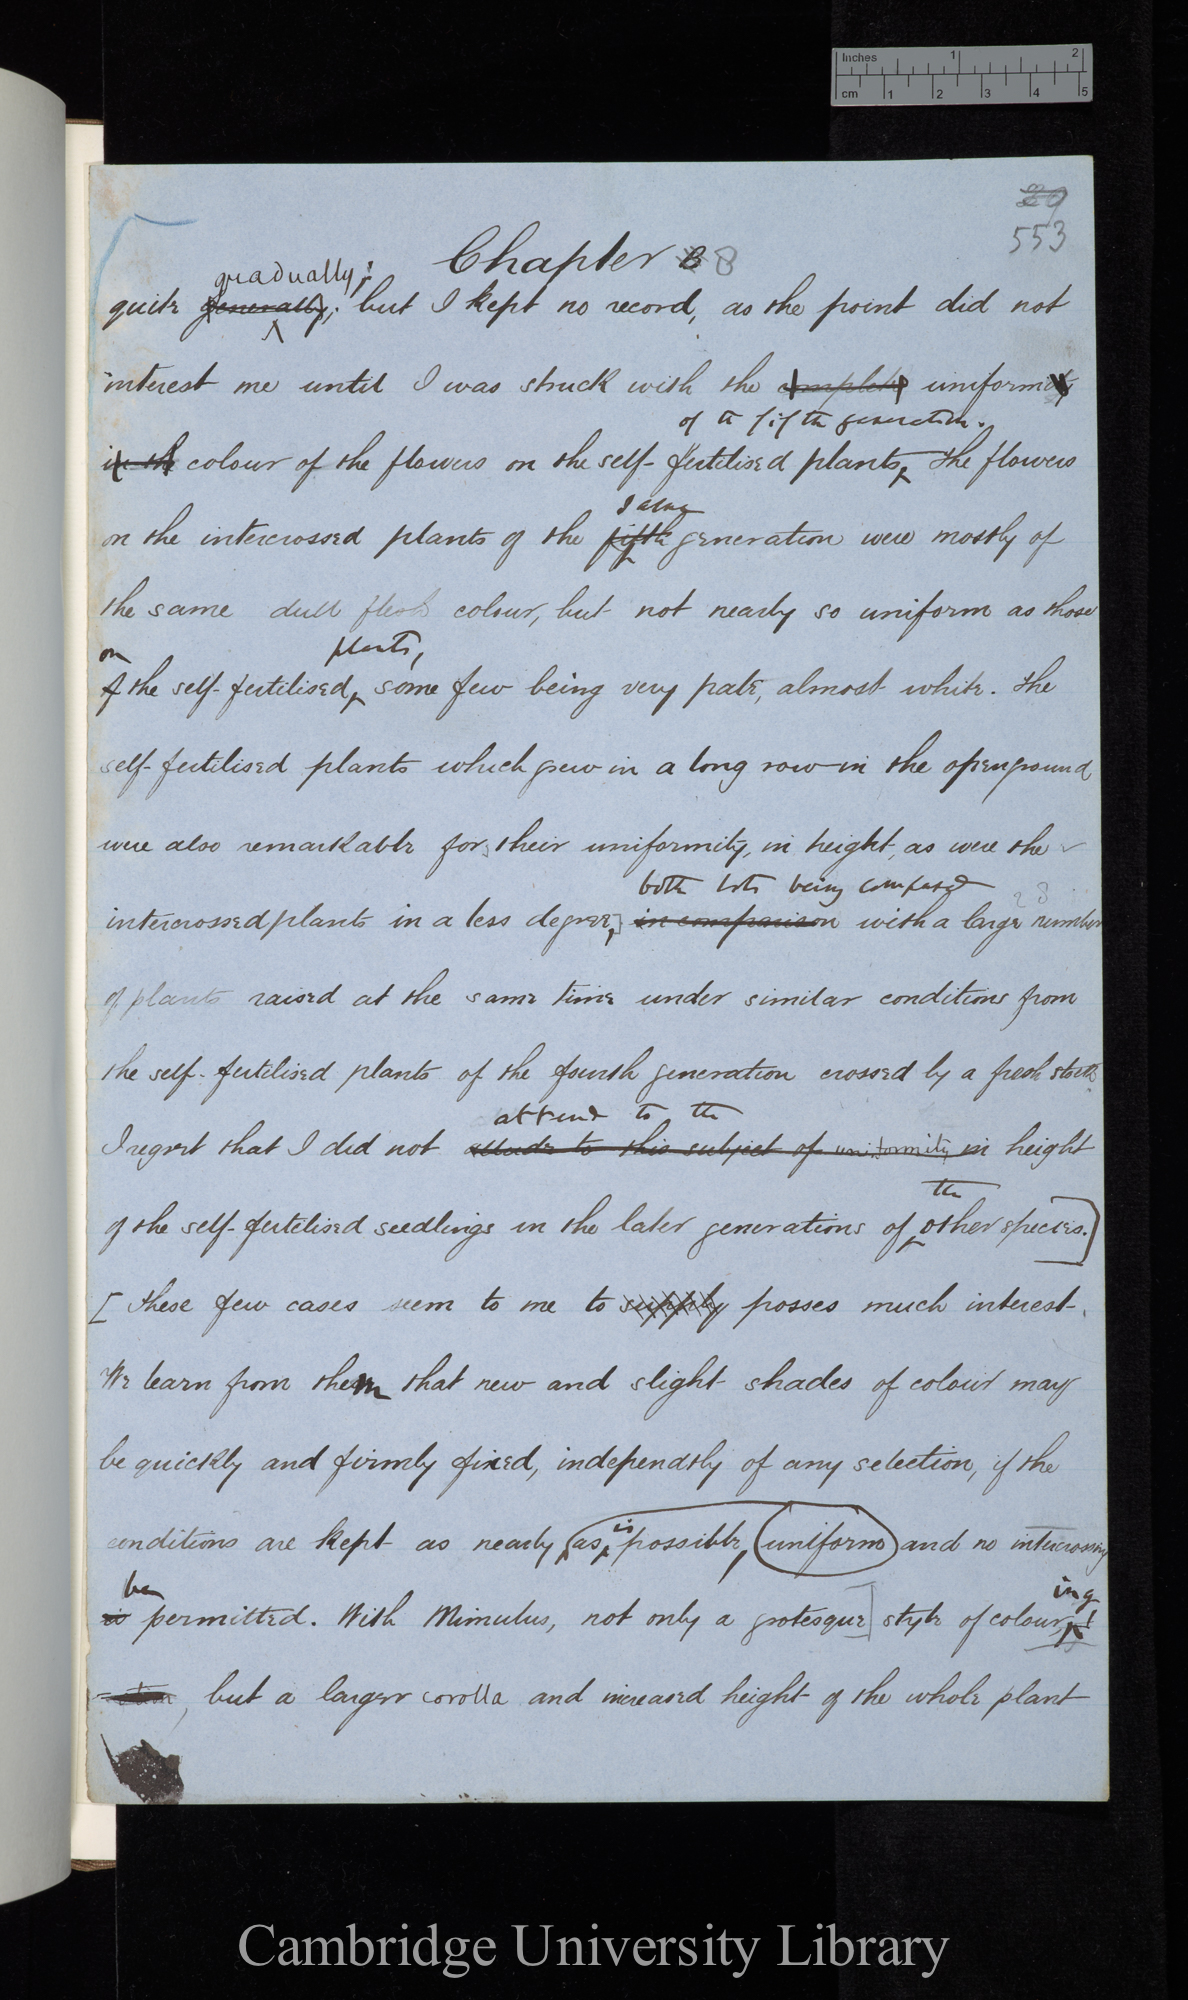 Inches 1 2
cm 1 2 3 4 5
29
553
Chapter 8 8
gradually;
quite generally; but I kept no record, as the point did not
interest me until I was struck with the complete uniformly
of the fifth generation.
in the colour of the flowers on the self-fertilised plants, The flowers
same
on the intercrossed plants of the fifth generation were mostly of
the same dull flesh colour, but not nearly so uniform as those
on plants,
of the self-fertilised, some few being very pale, almost white. The
self-fertilised plants which grew in a long row in the open ground
were also remarkable for their uniformity, in height, as were the
both lots being compared
23
intercrossed plants in a less degree, in comparison with a large number
of plants raised at the same time under similar conditions from
the self-fertilised plants of the fourth generation crossed by a fresh stock
attend to the
I regret that I did not attend to this subject of uniformity in height
the
of the self-fertilised seedlings in the later generations of other species.]
[These few cases seem to me to supply posses much interest.
We learn from them that new and slight shades of colour may
be quickly and firmly fixed, independtly of any selection, if the
is
conditions are kept as nearly as possible, uniform and no intercrossing
be ing
is permitted. With Mimulus, not only a grotesque] style of colour,
, but a larger corolla and increased height of the whole plant
Cambridge University Library